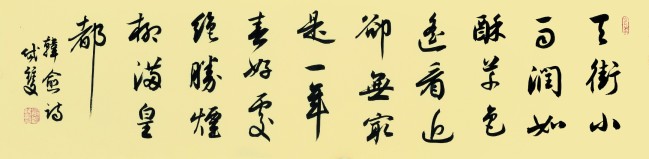 天街小
雨潤如
酥草色
遙看近
卻無最
是一年
春好處
絕勝煙
柳滿皇
都
韓愈詩